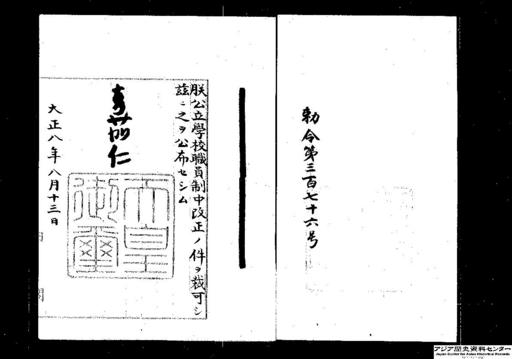 勅令第三百七十六号
朕公立學校職員制中改正ノ件ヲ裁可シ
茲ニ之ヲ公布セシム
嘉仁
天皇御璽
大正八年八月十三日
内閣
アジア歴史資料センター
Japan Center for Asian Historical Records